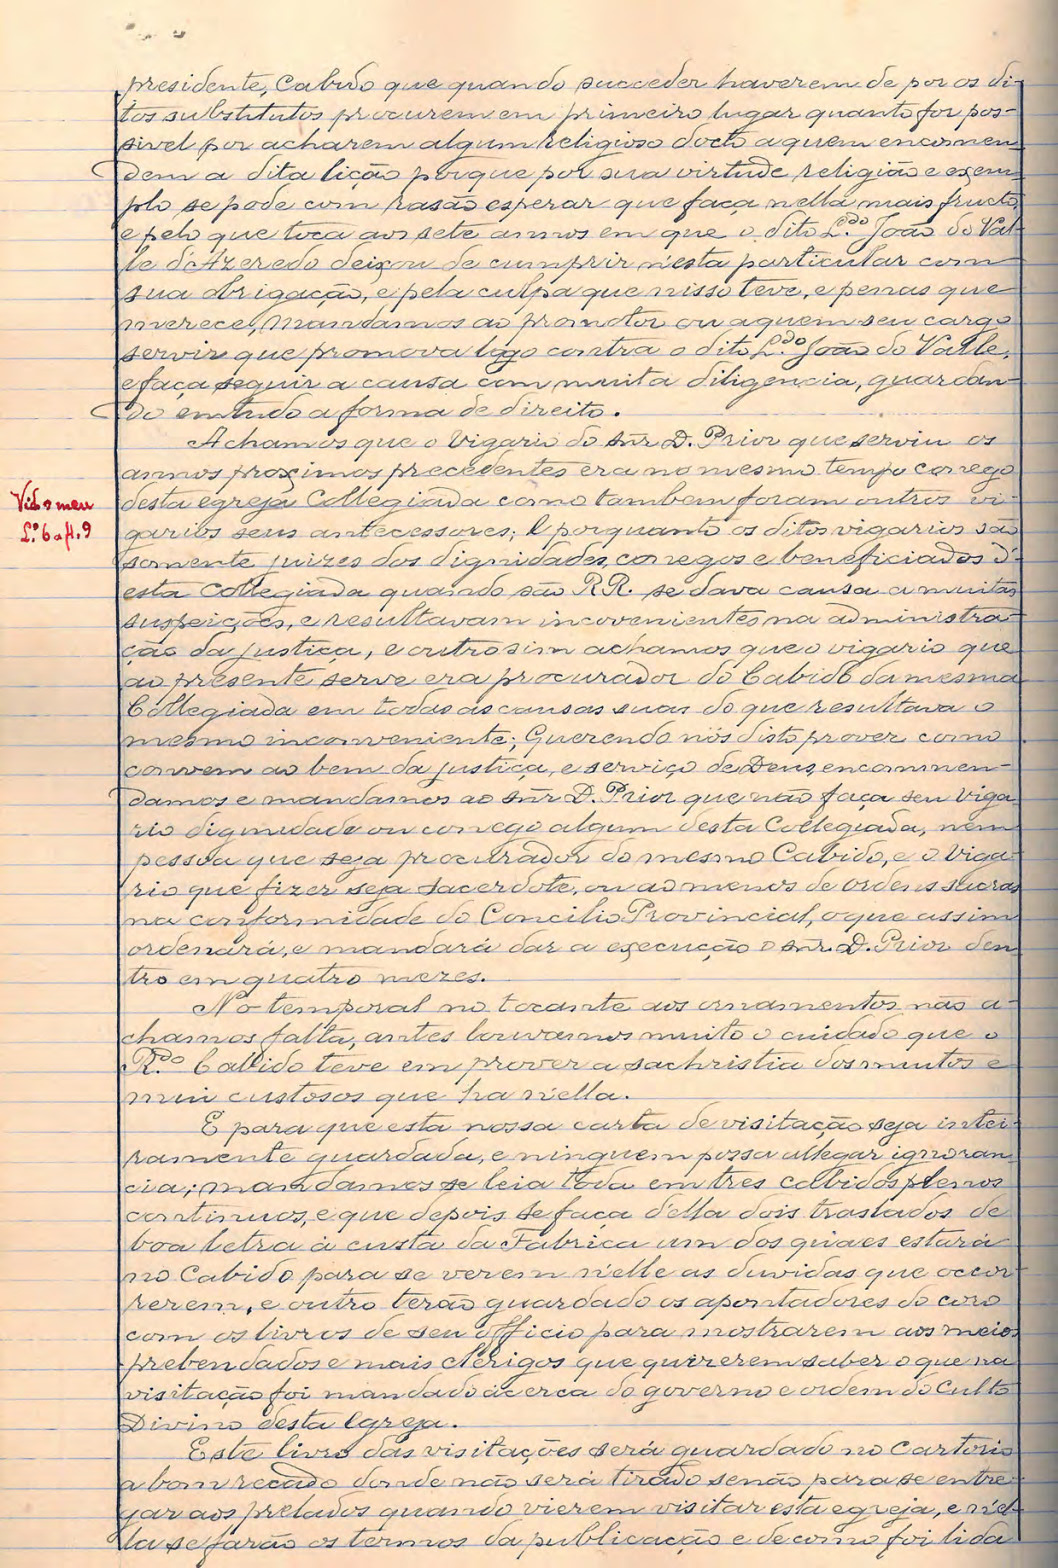 presidente, Cabido que quando succeder haverem de por os di-
tos substitutos procurem em primeiro lugar quanto for pos-
sivel por acharem algum religioso docto a quem encomen-
dem a dita lição porque por sua virtude religião e exem-
plo se pode com rasão esperar que faça nella mais fructo
e pelo que toca aos sete annos em que o dito L.do João do Val-
le d'Azeredo deixou de cumprir n'esta particular com
sua obrigação, e pela culpa que nisso teve, e penas que
merece, Mandamos ao promotor ou a quem seu cargo
servir que promova logo contra o dito L.do João do Valle,
e faça seguir a causa com muita diligencia, guardan-
do em tudo a forma de direito.
Achamos que o Vigario do Snr. D. Prior que serviu os
annos proximos precedentes era no mesmo tempo conego
desta egreja Collegiada como tambem foram outros vi-
garios seus antecessores; E porquanto os ditos vigarios são
Vid. o meu
L.º 6 a fl. 9
somente juizes dos dignidades, conegos e beneficiados d'
esta Collegiada quando são RR. se dava causa a muitas
suspeições, e resultavam incovenientes na administra-
ção da justiça, e outro sim achamos que o vigario que
ao presente serve era procurador do Cabido da mesma
Collegiada em todas as causas suas do que resultava o
mesmo inconveniente; Querendo nós disto prover como
convem ao bem da justiça, e serviço de Deus, encommen-
damos e mandamos ao Snr. D. Prior que não faça seu Viga-
rio dignidade ou conego algum desta Collegiada, nem
pessoa que seja procurador do mesmo Cabido, e o Viga-
rio que fizer seja sacerdote, ou ao menos de ordens sacras
na conformidade do Concilio Provincial, o que assim
ordenará, e mandará dar a execução o Snr. D. Prior den-
tro em quatro mezes.
No temporal no tocante aos ornamentos não a-
chamos falta, antes louvamos muito o cuidado que o
R.do Cabido teve em prover a sachristia dos muitos e
mui custosos que ha n'ella.
E para que esta nossa carta de visitação seja intei-
ramente guardada, e ninguem possa allegar ignoran-
cia; mandamos se leia toda em tres cabidos plenos
continuos, e que depois se faça d'ella dois traslados de
boa letra á custa da Fabrica um dos quaes estará
no Cabido para se verem n'elle as duvidas que occor-
rerem, e outro terão guardado os apontadores do coro
com os livros de seu officio para mostrarem aos meios
prebendados e mais clerigos que quizerem saber o que na
visitação foi mandado ácerca do governo e ordem do Culto
Divino desta Egreja.
Este livro das visitações será guardado no Cartorio
a bom recado donde não será tirado senão para se entre-
gar aos prelados quando vierem visitar esta egreja, e n'el-
la se farão os termos da publicação e de como foi lida